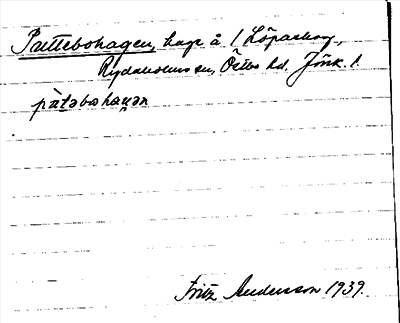 Pattebohagen, hage å 1 Löpaskog,
Rydaholms sn, Östbo hd. Jönk. l.
pàtəbohaɡən
Fritz Andersson 1939.